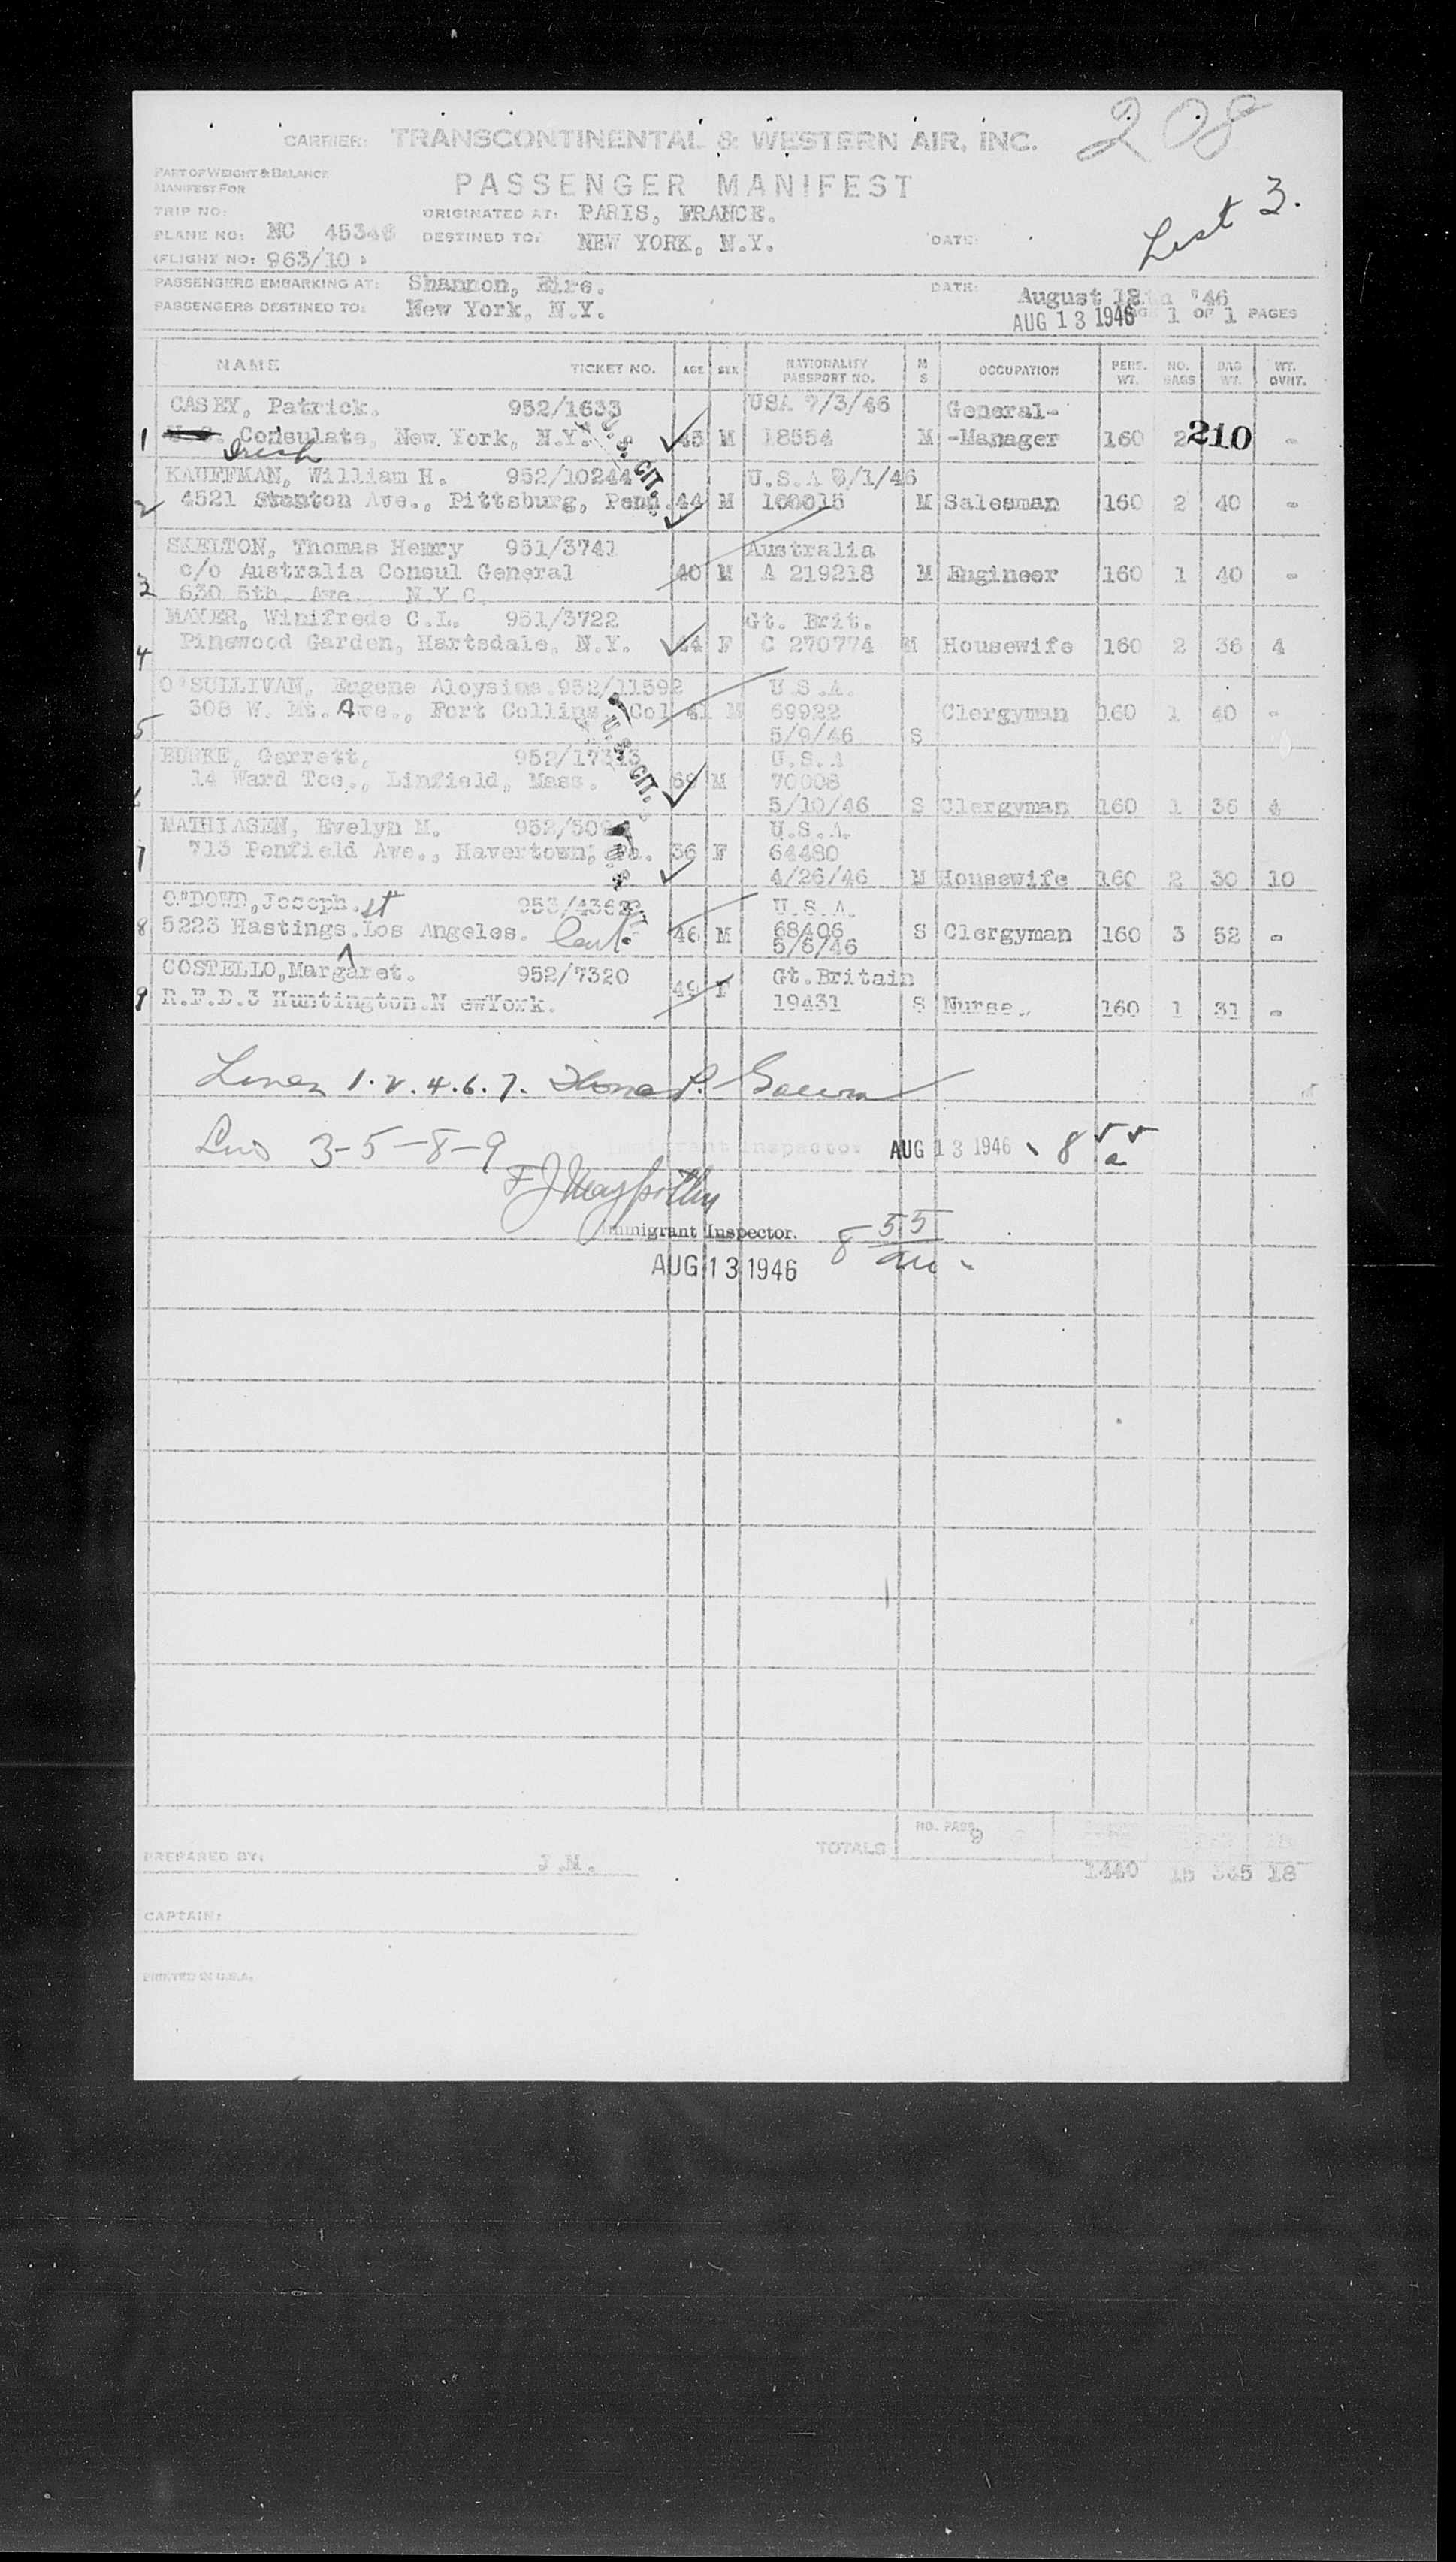 208
CARRIER: TRANSCONTINENTAL & WESTERN AIR, INC.
PART OF WEIGHT & BALANCE
MANIFEST FOR
PASSENGER MANIFEST
List 3.
TRIP NO:
ORIGINATED AT: PARIS, FRANCE.
PLANE NO: NC 45346
DESTINED TO: NEW YORK, N.Y.
DATE:
(FLIGHT NO: 963/10 )
PASSENGERS EMBARKING AT: Shannon, Eire.
DATE: August 12th '46
PASSENGERS DESTINED TO: New York, N.Y.
AUG 13 1946 1 OF 1 PAGES
NAME TICKET NO. AGE SEX NATIONALITY PASSPORT NO. M S OCCUPATION PERS. WT. NO. BAGS BAG WT. WT. OVHT.
CASEY, Patrick. 952/1633 USA 7/3/46 General-
1 U.S. Consulate, New York, N.Y. 45 M 18554 M -Manager 160 2 210 -
Irish
U. S. CIT.
KAUFFMAN, William H. 952/10244 U.S.A 8/1/46
2 4521 Stanton Ave., Pittsburg, Penn. 44 M 100015 M Salesman 160 2 40 -
SKELTON, Thomas Henry 951/3741 Australia
c/o Australia Consul General 40 M A 219218 M Engineer 160 1 40 -
3 630 5th. Ave. N.Y.C.
MAYER, Winifrede C.L. 951/3722 Gt. Brit.
4 Pinewood Garden, Hartsdale, N.Y. 44 F C 270774 M Housewife 160 2 36 4
O'SULLIVAN, Eugene Aloysius. 952/11592 U.S.A.
308 W. Mt. Ave., Fort Collins, Col 41 M 69922 Clergyman 160 1 40 -
5 5/9/46 S
U. S. CIT.
BURKE, Garrett, 952/17313 U.S.A
14 Ward Tce., Linfield, Mass. 69 M 70008
6 5/10/46 S Clergyman 160 1 36 4
MATHIASEN, Evelyn M. 952/50 U.S.A.
7 713 Penfield Ave., Havertown, Pa. 36 F 64480
4/26/46 M Housewife 160 2 30 10
O'DOWD, Joseph. st 953/43622 U.S.A.
8 5223 Hastings. Los Angeles. 46 M 68406 S Clergyman 160 3 52 -
5/6/46
COSTELLO, Margaret. 952/7320 Gt.Britain
9 R.F.D.3 Huntington.N ewYork. 49 F 19431 S Nurse. 160 1 31 -
Lines 1. 2. 4. 6. 7.
Immigrant Inspector. AUG 13 1946 8 55 a
Lns 3-5-8-9
Immigrant Inspector.
8 55 am
AUG 13 1946
TOTALS NO. PASS. 9
PREPARED BY: J.M.
1440 15 18
CAPTAIN:
PRINTED IN U.S.A.